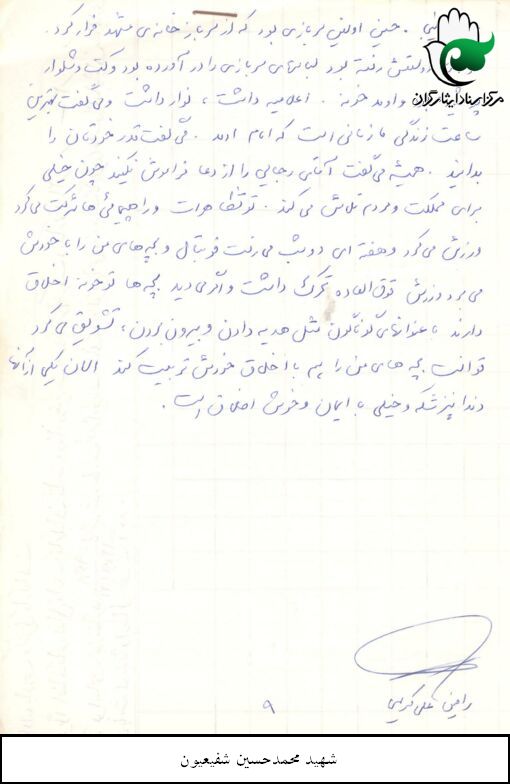 مرکز اسناد ایثارگران
حسین اولین سربازی بود که از سربازخانه‌ی مشهد فرار کرد.
رفته بود لباسهای سربازی را در آورده بود و کت و شلوار
و اومد خونه. اعلامیه داشت، نوار داشت و می گفت بهترین
ساعت زندگی ما زمانی است که امام اومد. می گفت قدر خودتان را
بدانید. همیشه می گفت آقای رجایی را از دعا فراموش نکنید چون خیلی
برای مملکت و مردم تلاش می کند. تو تظاهرات و راهپیمائی ها شرکت می کرد
ورزش می کرد و هفته ای دو شب می رفت فوتبال و بچه های من را با خودش
می برد ورزش فوق العاده تحرک داشت و اگر می دید بچه ها تو خونه اخلاق
دارند با عنوانهای گوناگون مثل هدیه دادن و بیرون بردن، تشویق می کرد
توانست بچه های من را هم با اخلاق خودش تربیت کند الان یکی از آنها
دندانپزشکه و خیلی با ایمان و خوش اخلاق است.
۹
شهید محمدحسین شفیعیون